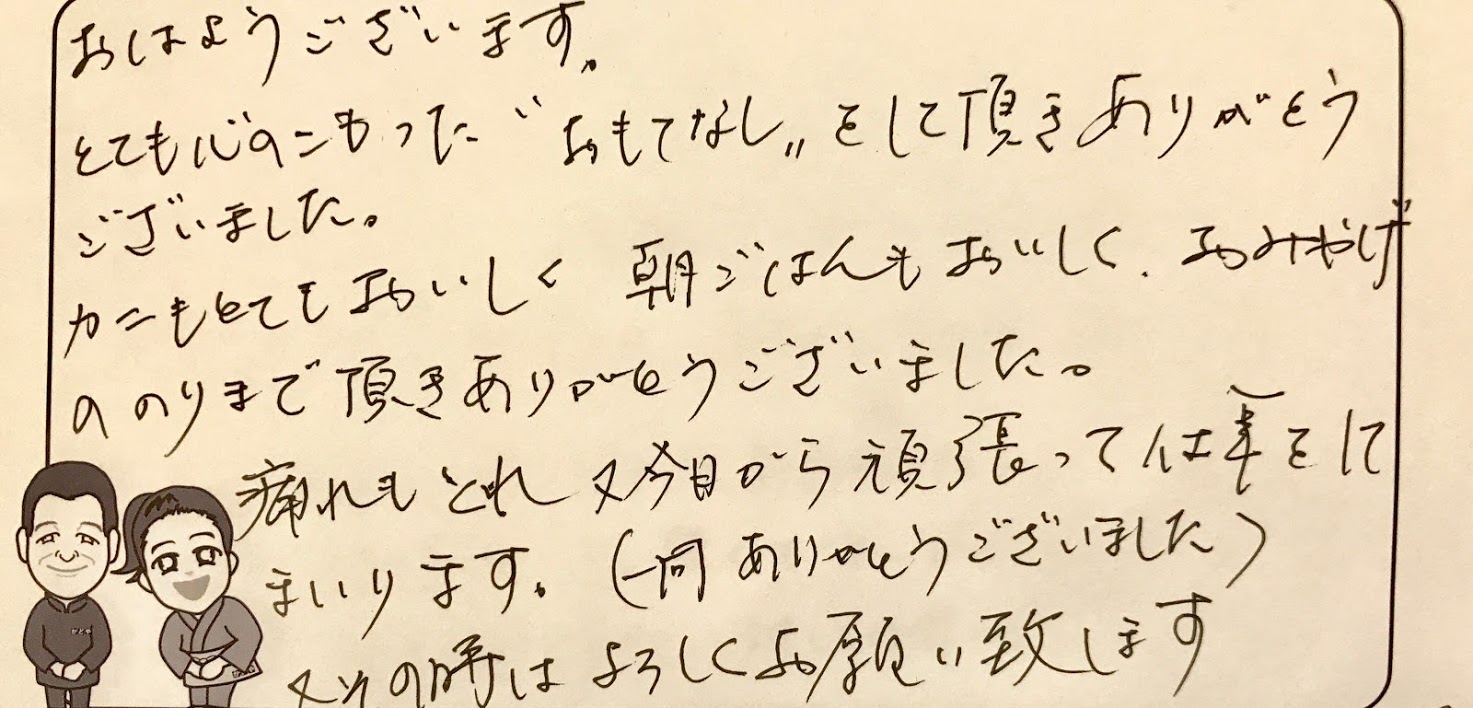 おはようございます。
とても心のこもった〝おもてなし〟をして頂きありがとう
ございました。
カニもとてもおいしく 朝ごはんもおいしく、おみやげ
ののりまで頂きありがとうございました。
疲れもとれ 又今日から頑張って仕事をして
まいります。(一同 ありがとうございました)
又その時は よろしくお願い致します